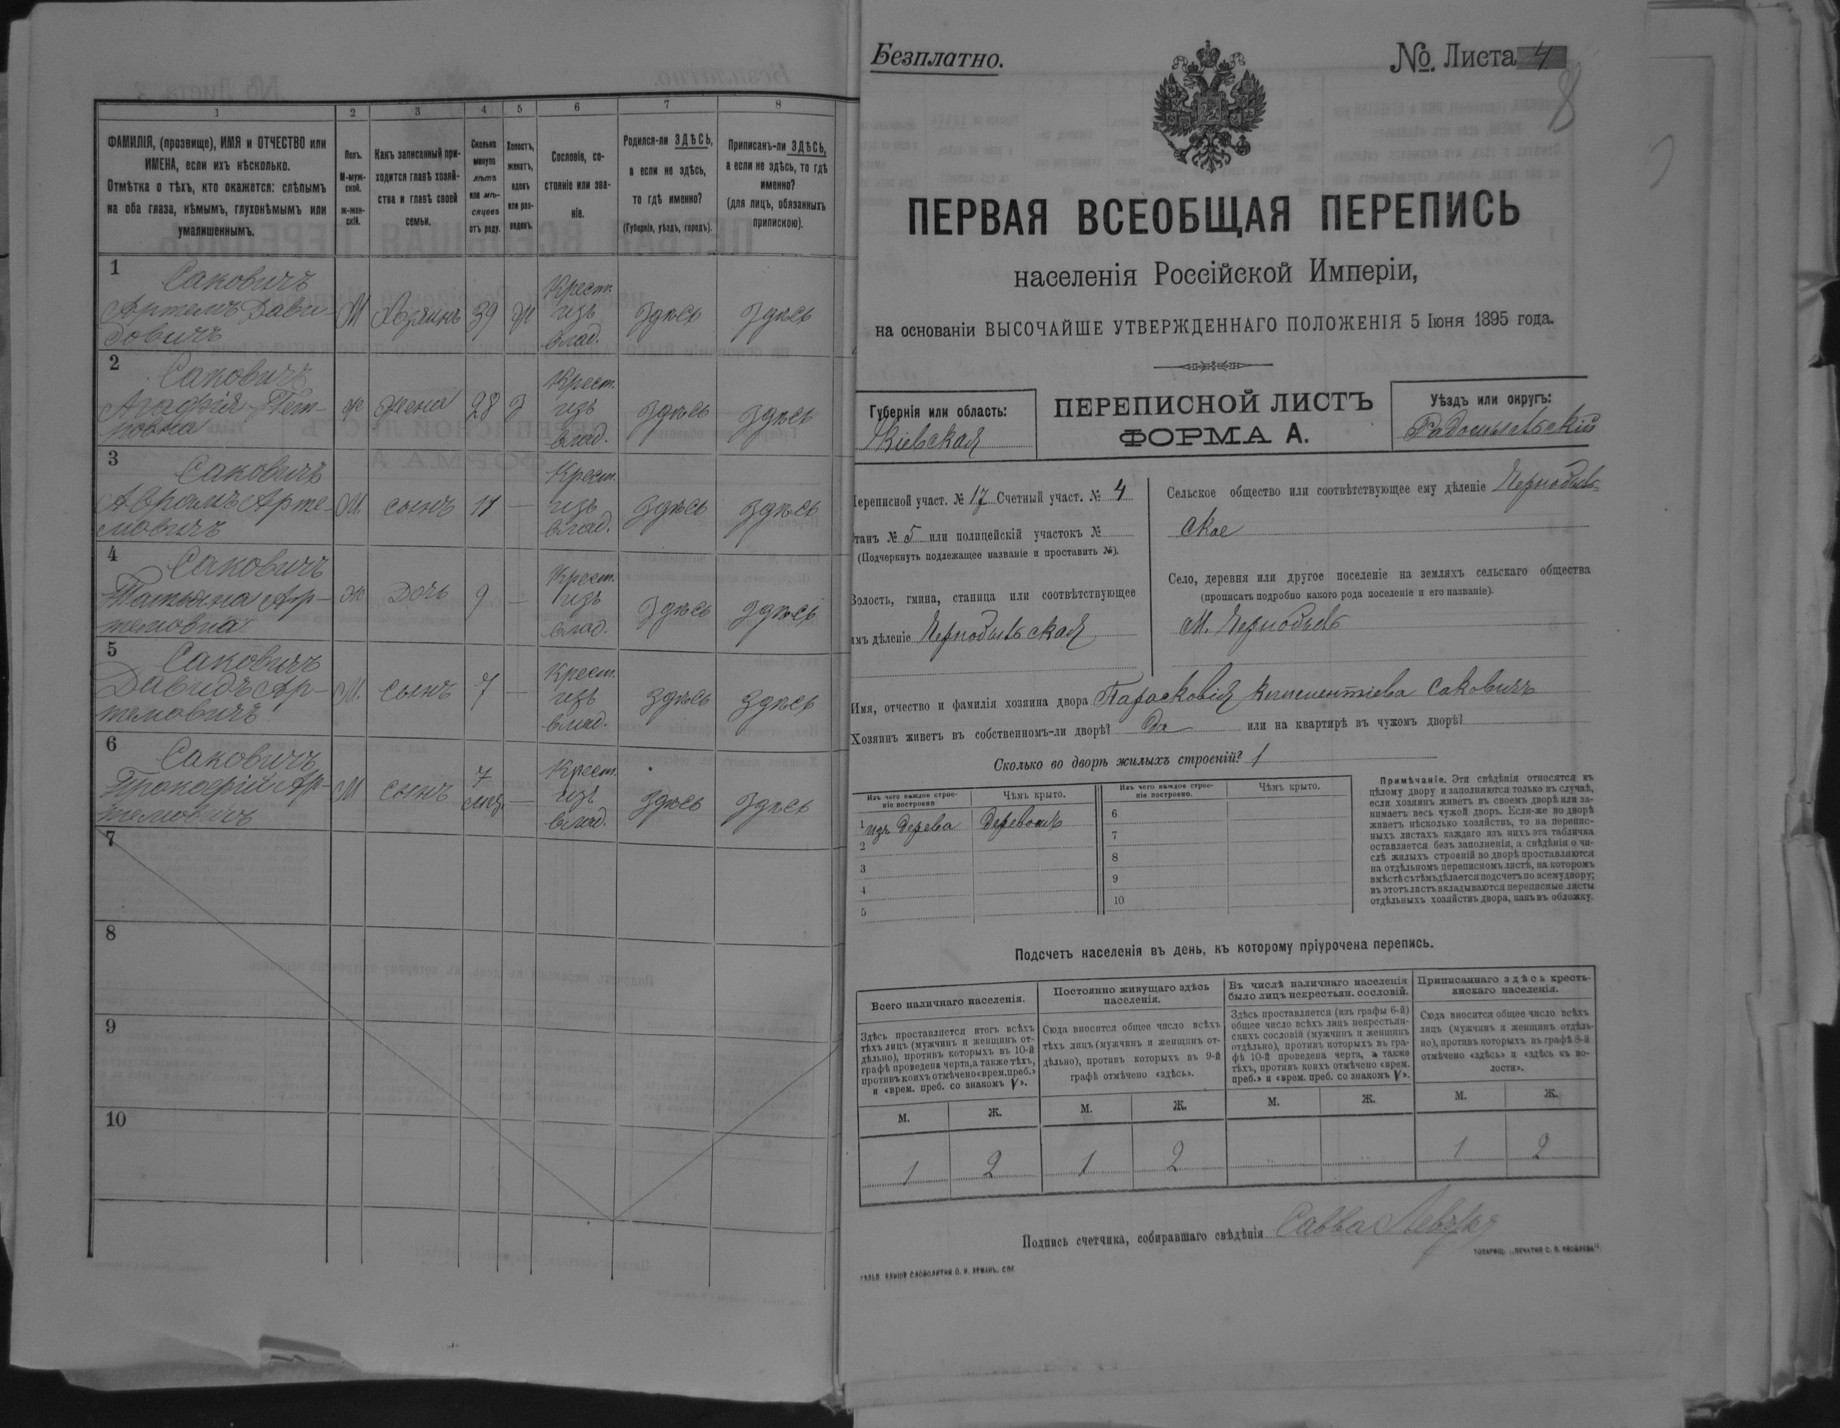 1 2 3 4 5 6 7 8
ФАМИЛІЯ, (прозвище), ИМЯ и ОТЧЕСТВО или
ИМЕНА, если ихъ нѣсколько.
Отмѣтка о тѣхъ, кто окажется: слѣпымъ
на оба глаза, нѣмымъ, глухонѣмымъ или
умалишеннымъ.
Полъ.
М-муж-
ской.
Ж-жен-
скій.
Какъ записанный при-
ходится главѣ хозяй-
ства и главѣ своей
семьи.
Сколько
минуло
лѣтъ
или мѣ-
сяцевъ
отъ роду.
Холостъ,
женатъ,
вдовъ
или раз-
веденъ.
Сословіе, со-
стояніе или зва-
ніе.
Родился-ли ЗДѢСЬ,
а если не здѣсь,
то гдѣ именно?
(Губернія, уѣздъ, городъ).
Приписанъ-ли ЗДѢСЬ,
а если не здѣсь, то гдѣ
именно?
(для лицъ, обязанныхъ
припискою).
1 Саковичъ
Артемъ Дави-
довичъ
М Хозяинъ 39 Ж
Крест.
изъ
влад.
Здѣсь Здѣсь
2 Саковичъ
Агафія Пет-
ровна
Ж Жена 28 З
Крест.
изъ
влад.
Здѣсь Здѣсь
3 Саковичъ
Аврамъ Арте-
мовичъ
М. сынъ 11 —
Крест.
изъ
влад.
Здѣсь Здѣсь
4 Саковичъ
Татьяна Ар-
темовна
Ж Дочь 9 —
Крест.
изъ
влад.
Здѣсь Здѣсь
5 Саковичъ
Давидъ Ар-
темовичъ
М. сынъ 7 —
Крест.
изъ
влад.
Здѣсь Здѣсь
6 Саковичъ
Прокофій Ар-
темовичъ
М сынъ 7
мѣс. —
Крест.
изъ
влад.
Здѣсь Здѣсь
7
8
9
10
Безплатно.
№. Листа 4
8
ПЕРВАЯ ВСЕОБЩАЯ ПЕРЕПИСЬ
населенія Россійской Имперіи,
на основаніи ВЫСОЧАЙШЕ УТВЕРЖДЕННАГО ПОЛОЖЕНІЯ 5 Іюня 1895 года.
Губернія или область:
Кіевская
ПЕРЕПИСНОЙ ЛИСТЪ
ФОРМА А.
Уѣздъ или округъ:
Радомысльскій
Переписной участ. № 17 Счетный участ. № 4
танъ № 5 или полицейскій участокъ №
(Подчеркнуть подлежащее названіе и проставить №).
Волость, гмина, станица или соотвѣтствующее
имъ дѣленіе Чернобыльская
Сельское общество или соотвѣтствующее ему дѣленіе Чернобыль-
ское
Село, деревня или другое поселеніе на земляхъ сельскаго общества
(прописать подробно какого рода поселеніе и его названіе).
м. Чернобыль
Имя, отчество и фамилія хозяина двора Парасковія Климентіева Саковичъ
Хозяинъ живетъ въ собственномъ-ли дворѣ? Да или на квартирѣ въ чужомъ дворѣ?
Сколько во дворѣ жилыхъ строеній? 1
Изъ чего каждое строе-
ніе построено
Чѣмъ крыто.
Изъ чего каждое строе-
ніе построено.
Чѣмъ крыто.
1 изъ дерева Деревомъ
2
3
4
5
6
7
8
9
10
Примѣчаніе. Эти свѣдѣнія относятся къ
цѣлому двору и заполняются только въ случаѣ,
если хозяинъ живетъ въ своемъ дворѣ или за-
нимаетъ весь чужой дворъ. Если-же во дворѣ
живетъ нѣсколько хозяйствъ, то на перепис-
ныхъ листахъ каждаго изъ нихъ эта табличка
оставляется безъ заполненія, а свѣдѣнія о чи-
слѣ жилыхъ строеній во дворѣ проставляются
на отдѣльномъ переписномъ листѣ, на которомъ
вмѣстѣ съ тѣмъ дѣлается подсчетъ по всему двору;
въ этотъ листъ вкладываются переписные листы
отдѣльныхъ хозяйствъ двора, какъ въ обложку.
Подсчетъ населенія въ день, къ которому пріурочена перепись.
Всего наличнаго населенія.
Здѣсь проставляется итогъ всѣхъ
тѣхъ лицъ (мужчинъ и женщинъ от-
дѣльно), противъ которыхъ въ 10-й
графѣ проведена черта, а также тѣхъ,
противъ коихъ отмѣчено «врем. преб.»
и «врем. преб. со знакомъ V».
Постоянно живущаго здѣсь
населенія.
Сюда вносится общее число всѣхъ
тѣхъ лицъ (мужчинъ и женщинъ от-
дѣльно), противъ которыхъ въ 9-й
графѣ отмѣчено «здѣсь».
Въ числѣ наличнаго населенія
было лицъ некрестьян. сословій.
Здѣсь проставляется (изъ графы 6-й)
общее число всѣхъ лицъ некрестьян-
скихъ сословій (мужчинъ и женщинъ
отдѣльно), противъ которыхъ въ гра-
фѣ 10-й проведена черта, а также
тѣхъ, противъ коихъ отмѣчено «врем.
преб.» и «врем. преб. со знакомъ V».
Приписаннаго здѣсь кресть-
янскаго населенія.
Сюда вносится общее число всѣхъ
лицъ (мужчинъ и женщинъ отдѣль-
но), противъ которыхъ въ графѣ 8-й
отмѣчено «здѣсь» и «здѣсь въ во-
лости».
М. Ж. М. Ж. М. Ж. М. Ж.
1 2 1 2 1 2
Подпись счетчика, собиравшаго свѣдѣнія Савва